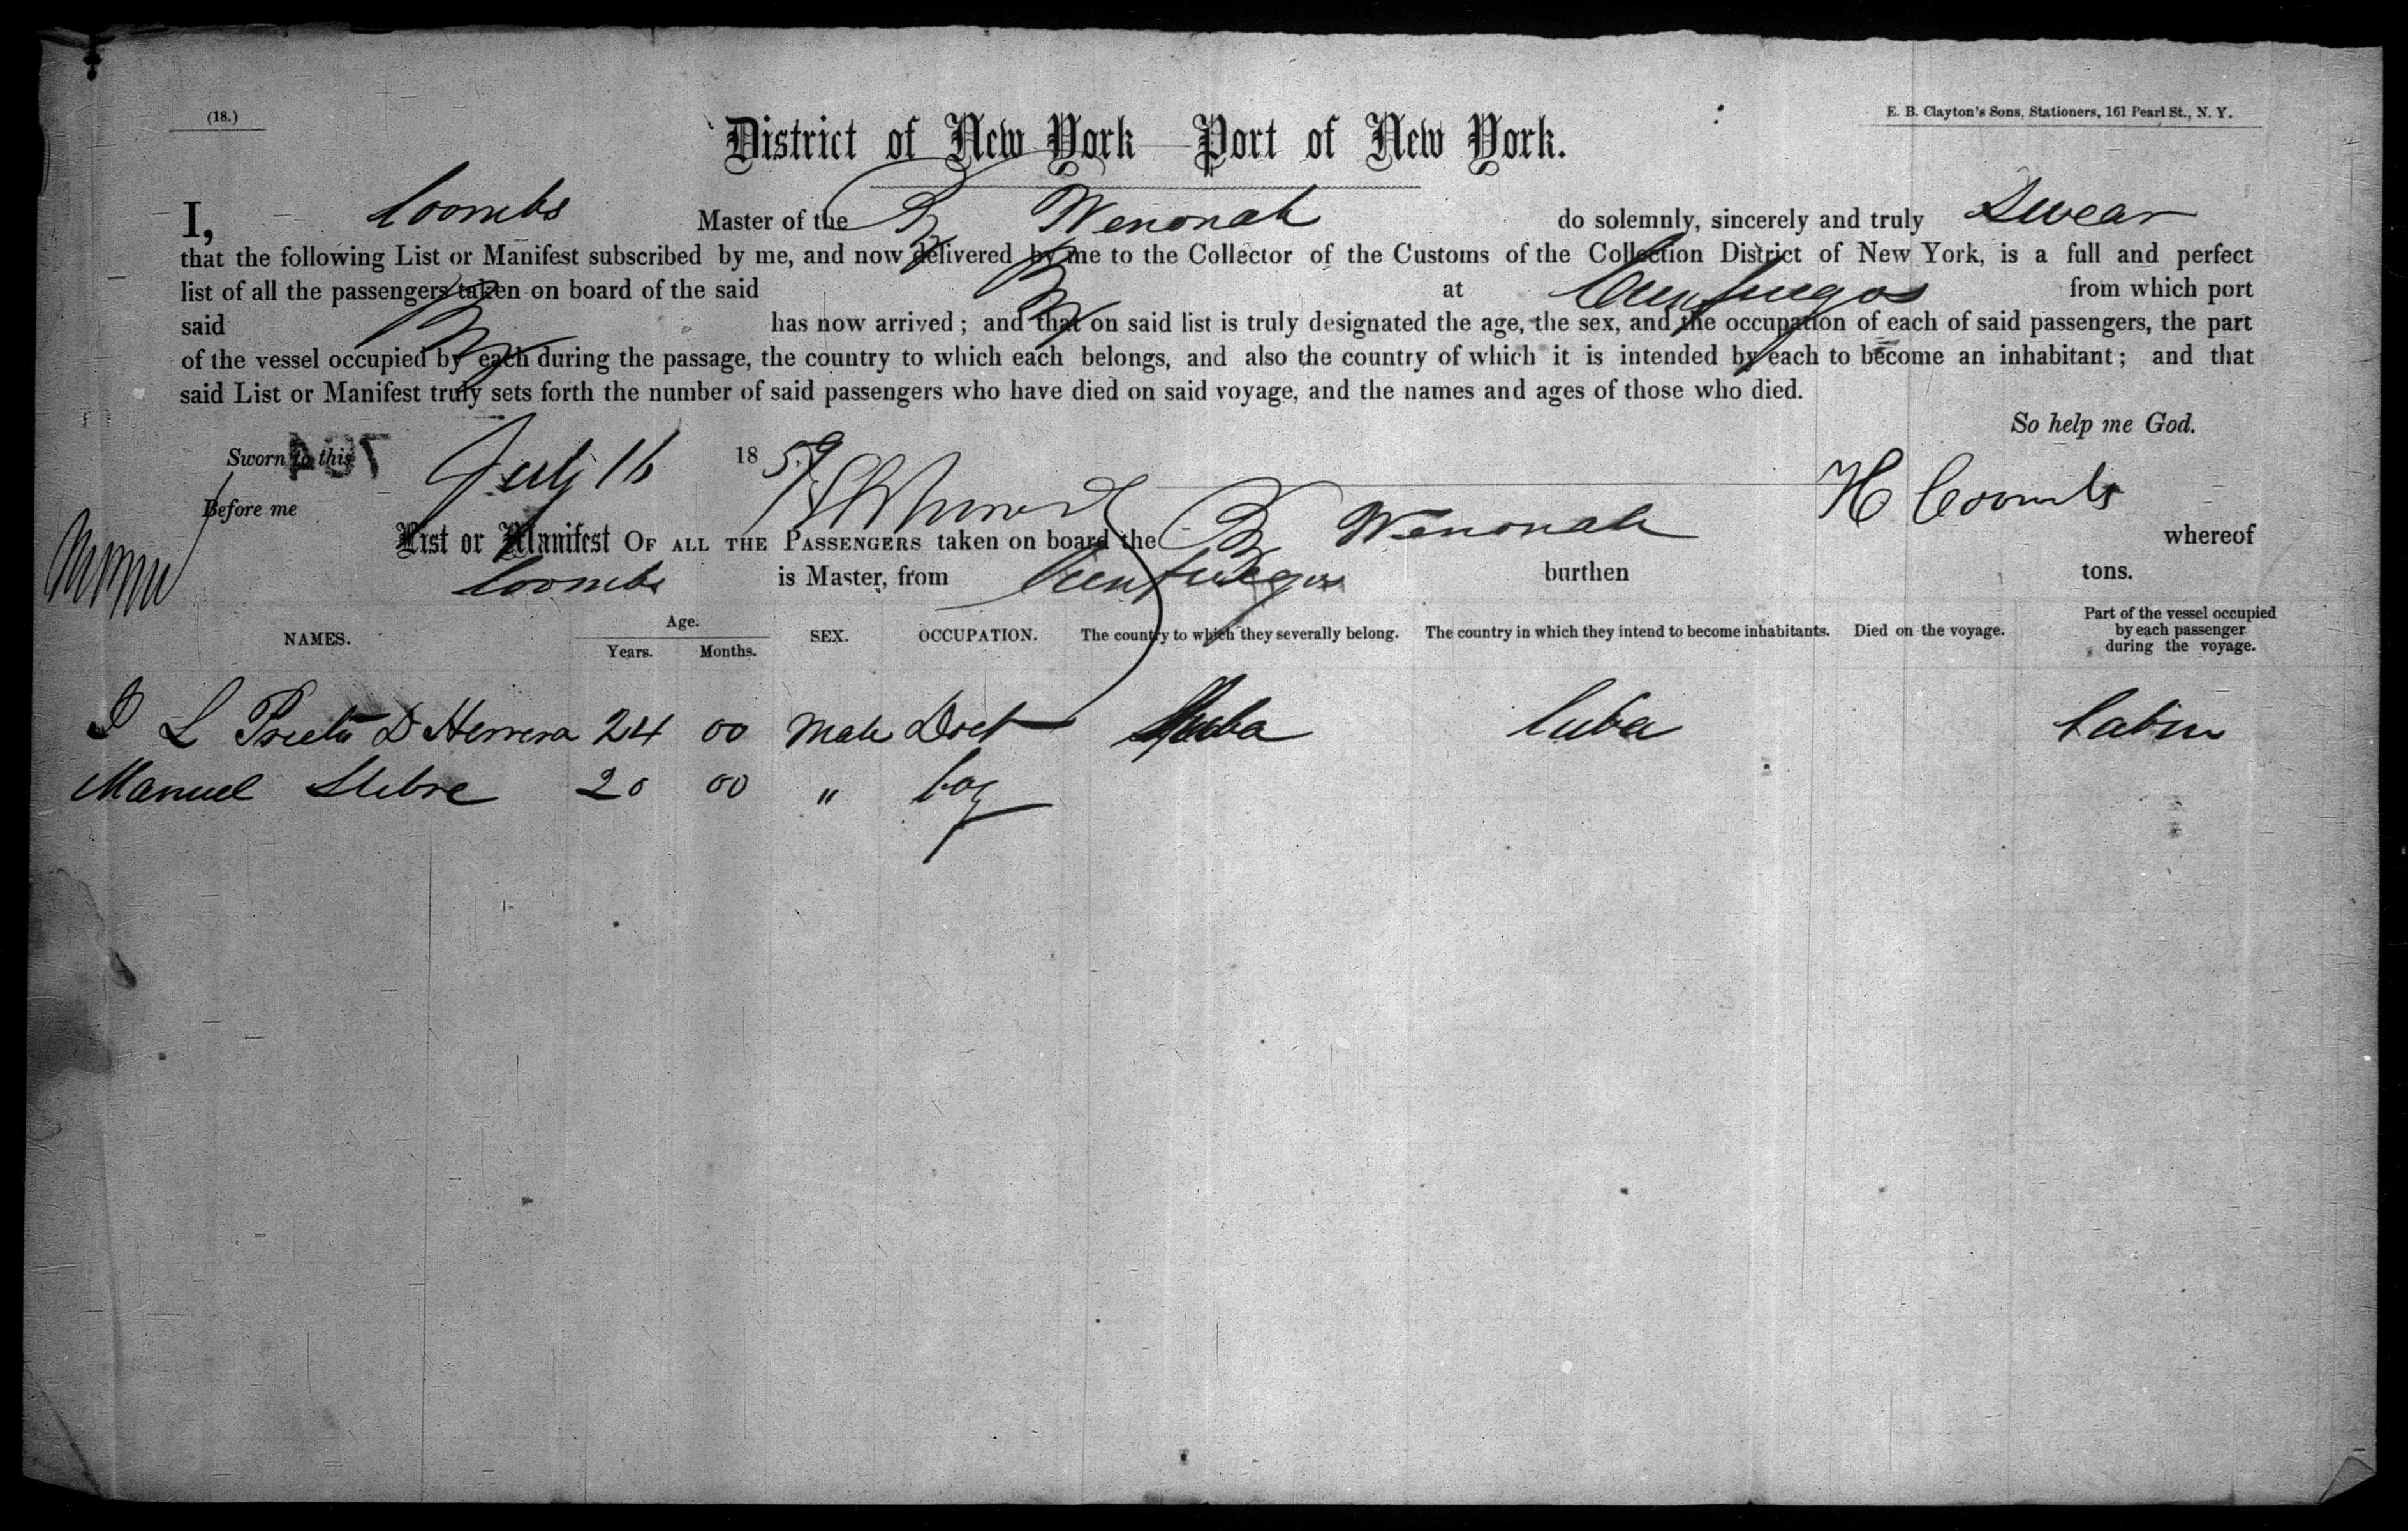 (18.)
E. B. Clayton's Sons, Stationers, 161 Pearl St., N. Y.
District of New York Port of New York.
I, Coombs Master of the Wenonah do solemnly, sincerely and truly Swear
that the following List or Manifest subscribed by me, and now delivered by me to the Collector of the Customs of the Collection District of New York, is a full and perfect
list of all the passengers taken on board of the said at Cienfuegos from which port
said has now arrived; and that on said list is truly designated the age, the sex, and the occupation of each of said passengers, the part
of the vessel occupied by each during the passage, the country to which each belongs, and also the country of which it is intended by each to become an inhabitant; and that
said List or Manifest truly sets forth the number of said passengers who have died on said voyage, and the names and ages of those who died.
So help me God.
Sworn to this July 16 1859
704
Before me
H Coombs
List or Manifest OF ALL THE PASSENGERS taken on board the Wenonah whereof
Coombs is Master, from Cienfuegos burthen tons.
NAMES. Age. Years. Months. SEX. OCCUPATION. The country to which they severally belong. The country in which they intend to become inhabitants. Died on the voyage. Part of the vessel occupied by each passenger during the voyage.
L D Herrera 24 00 Male Doct Cuba Cuba Cabin
Manuel 20 00 " boy